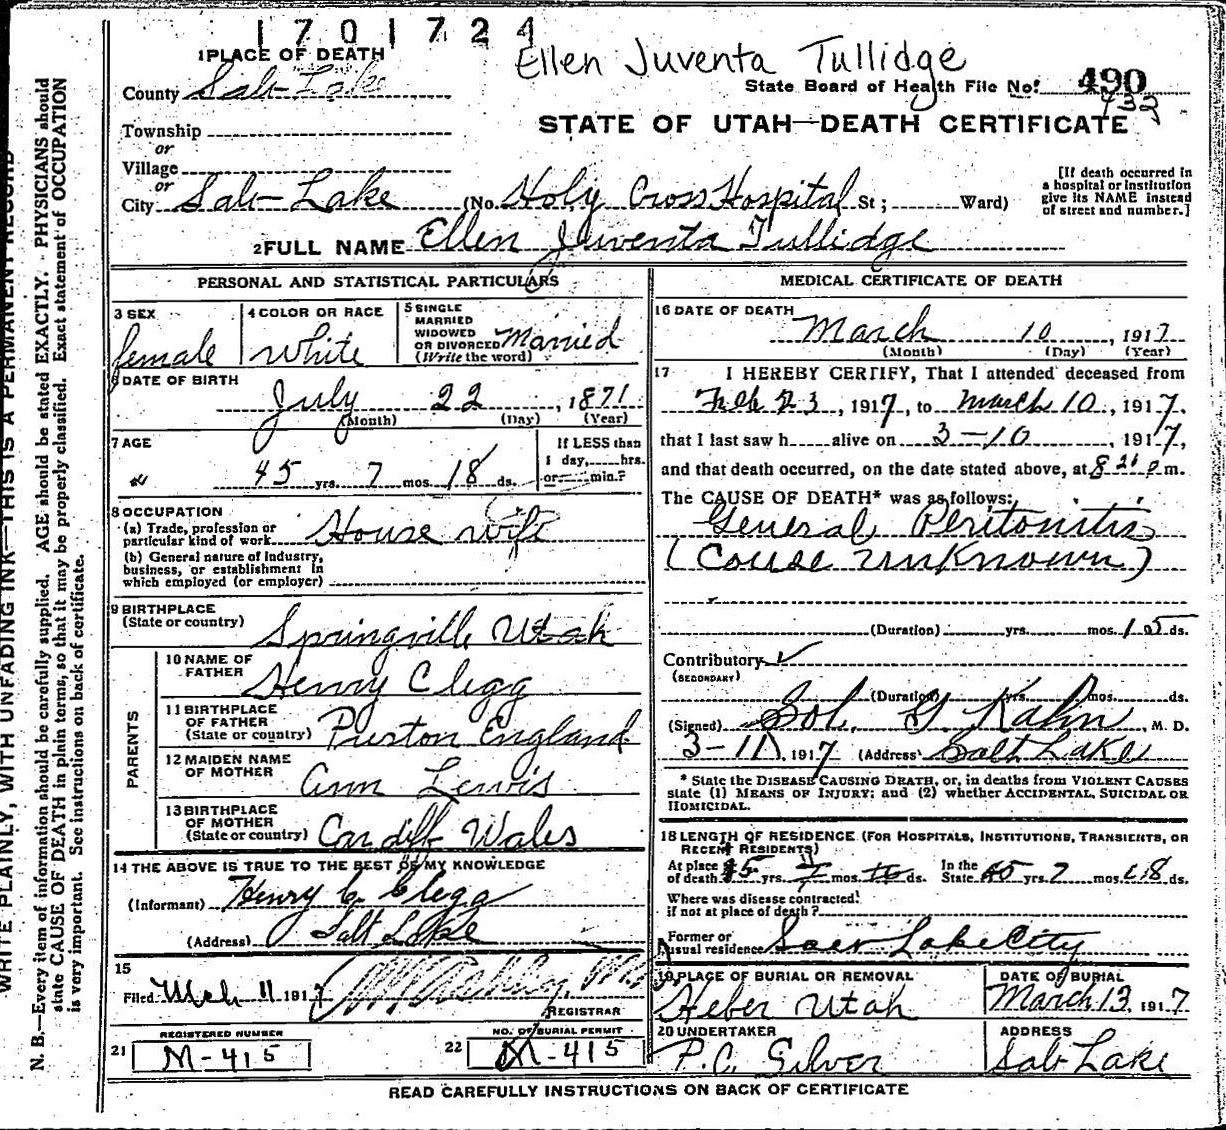 1701724
Ellen Juventa Tullidge
1 PLACE OF DEATH
County Salt Lake
State Board of Health File No. 490
432
Township
or
STATE OF UTAH—DEATH CERTIFICATE
Village
or
City Salt Lake (No. Holy Cross Hospital St; Ward)
[If death occurred in
a hospital or institution
give its NAME instead
of street and number.]
2 FULL NAME Ellen Juventa Tullidge
PERSONAL AND STATISTICAL PARTICULARS
3 SEX
female
4 COLOR OR RACE
White
5 SINGLE
MARRIED
WIDOWED
OR DIVORCED
(Write the word)
Married
6 DATE OF BIRTH
July 22, 1871
(Month) (Day) (Year)
7 AGE
45 yrs. 7 mos. 18 ds.
If LESS than
1 day, hrs.
or min.?
8 OCCUPATION
(a) Trade, profession or
particular kind of work House wife
(b) General nature of industry,
business, or establishment in
which employed (or employer)
9 BIRTHPLACE
(State or country) Springville Utah
PARENTS
10 NAME OF
FATHER Henry Clegg
11 BIRTHPLACE
OF FATHER
(State or country) Preston England
12 MAIDEN NAME
OF MOTHER Ann Lewis
13 BIRTHPLACE
OF MOTHER
(State or country) Cardiff Wales
14 THE ABOVE IS TRUE TO THE BEST OF MY KNOWLEDGE
(Informant) Henry C. Clegg
(Address) Salt Lake
15
Filed Mch 11 1917
REGISTRAR
REGISTERED NUMBER
21 M-415
NO. OF BURIAL PERMIT
22 M-415
MEDICAL CERTIFICATE OF DEATH
16 DATE OF DEATH
March 10, 1917
(Month) (Day) (Year)
17 I HEREBY CERTIFY, That I attended deceased from
Feb 23, 1917, to March 10, 1917.
that I last saw h alive on 3-10, 1917,
and that death occurred, on the date stated above, at 8 21 p m.
The CAUSE OF DEATH* was as follows:
General Peritonitis
(Couse unKnown)
(Duration) yrs. mos. 15 ds.
Contributory
(SECONDARY)
(Duration) yrs. mos. ds.
(Signed) Sol. G. Kahn, M. D.
3-11, 1917 (Address) Salt Lake
* State the DISEASE CAUSING DEATH, or, in deaths from VIOLENT CAUSES
state (1) MEANS OF INJURY; and (2) whether ACCIDENTAL, SUICIDAL OR
HOMICIDAL.
18 LENGTH OF RESIDENCE (FOR HOSPITALS, INSTITUTIONS, TRANSIENTS, OR
RECENT RESIDENTS)
At place
of death yrs. mos. ds.
In the
State 45 yrs. 7 mos. 18 ds.
Where was disease contracted
if not at place of death?
Former or
usual residence Salt Lake City
19 PLACE OF BURIAL OR REMOVAL
Heber Utah
DATE OF BURIAL
March 13, 1917
20 UNDERTAKER
ADDRESS
Salt Lake
READ CAREFULLY INSTRUCTIONS ON BACK OF CERTIFICATE
WRITE PLAINLY, WITH UNFADING INK—THIS IS A PERMANENT RECORD
N. B.—Every item of information should be carefully supplied. AGE should be stated EXACTLY. PHYSICIANS should
state CAUSE OF DEATH in plain terms, so that it may be properly classified. Exact statement of OCCUPATION
is very important. See instructions on back of certificate.